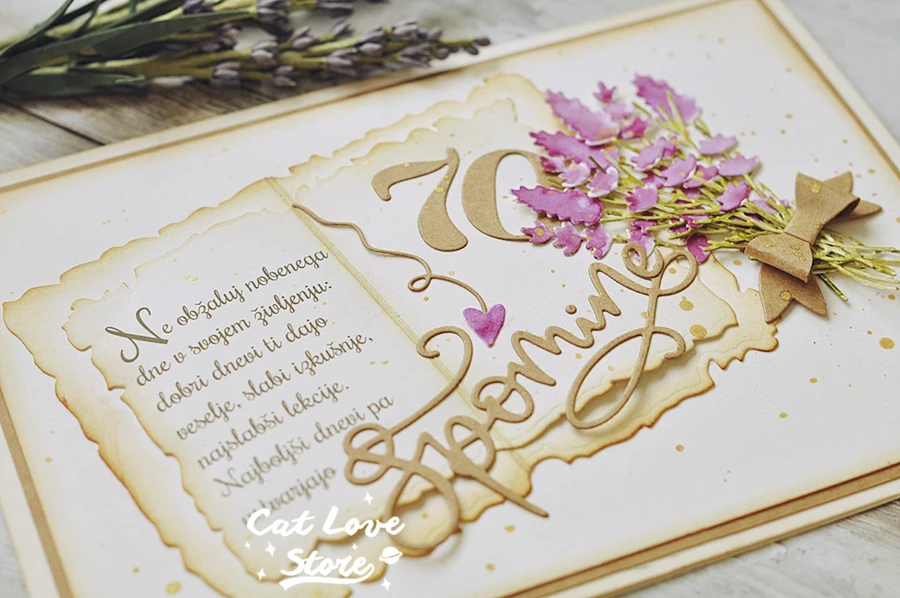 Ne obžaluj nobenega
dne v svojem življenju:
dobri dnevi ti dajo
veselje, slabi izkušnje,
najslabši lekcije.
Najboljši dnevi pa
ustvarjajo
70
Spomine
Cat Love
Store